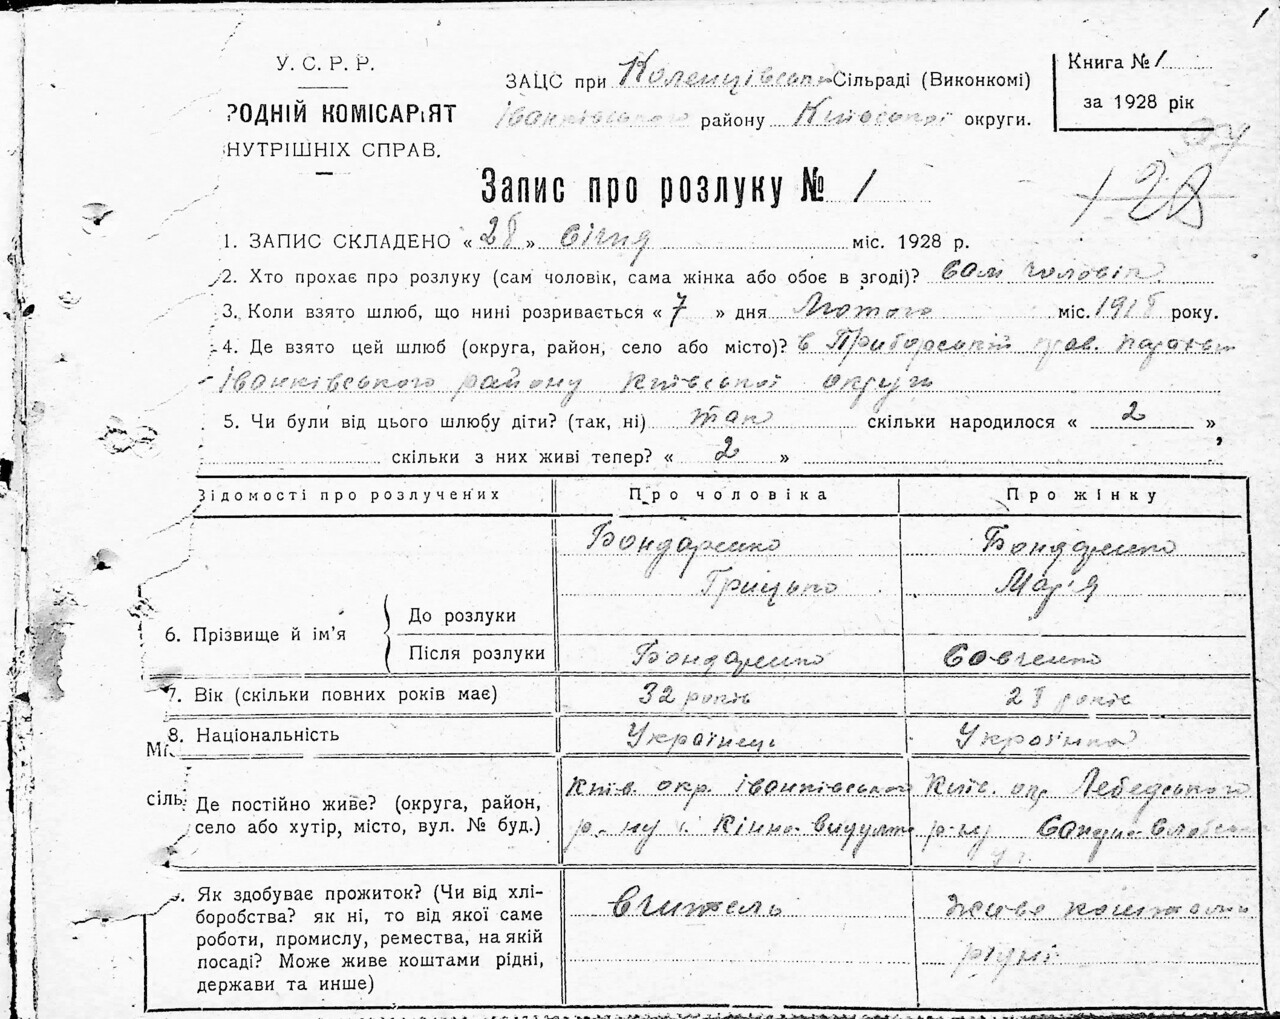 1
У. С. Р. Р.
РОДНІЙ КОМІСАР'ЯТ
НУТРІШНІХ СПРАВ.
ЗАЦС при Коленцівській Сільраді (Виконкомі)
Іванківського району Київської округи.
Книга № 1
за 1928 рік
Запис про розлуку № 1
128
1. ЗАПИС СКЛАДЕНО « 28 » Січня міс. 1928 р.
2. Хто прохає про розлуку (сам чоловік, сама жінка або обоє в згоді)? Сам чоловік
3. Коли взято шлюб, що нині розривається « 7 » дня Лютого міс. 1918 року.
4. Де взято цей шлюб (округа, район, село або місто)? в Приборській
Іванківського району Київської округи
5. Чи були від цього шлюбу діти? (так, ні) так скільки народилося « 2 »
скільки з них живі тепер? « 2 »
Відомості про розлучених Про чоловіка Про жінку
Бондаренко Бондаренко
Грицько Мар'я
6. Прізвище й ім'я До розлуки
Після розлуки Бондаренко Савченко
7. Вік (скільки повних років має) 32 років 28 років
8. Національність Українець Українка
Мі
сіль
Де постійно живе? (округа, район,
село або хутір, місто, вул. № буд.)
Київ. окр. Іванківського Київ. окр.
р-ну р-ну
Як здобуває прожиток? (Чи від хлі-
боробства? як ні, то від якої саме
роботи, промислу, ремества, на якій
посаді? Може живе коштами рідні,
держави та инше)
вчитель живе коштами
рідні